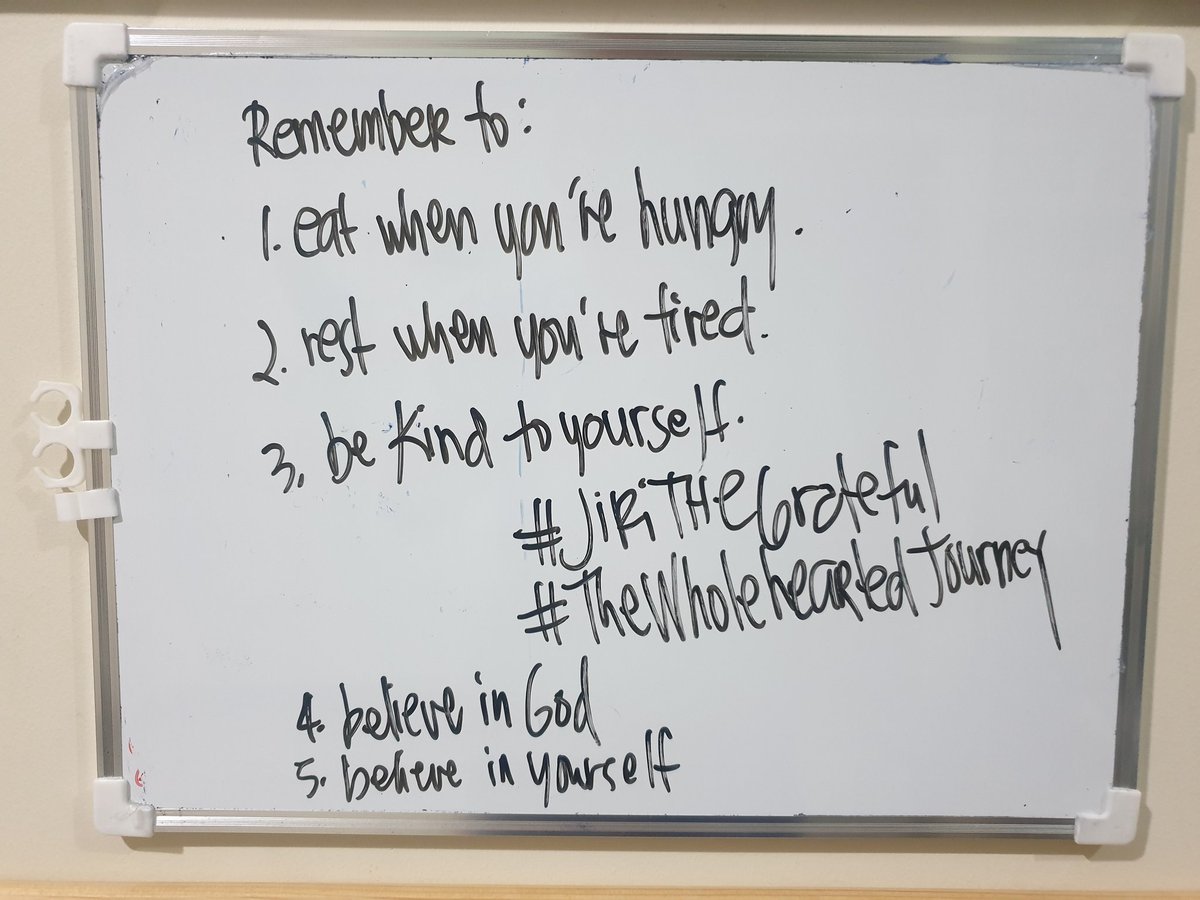 Remember to:
1. eat when you're hungry.
2. rest when you're tired.
3. be kind to yourself.
#JiRiTHeGrateful
#TheWholeheartedJourney
4. believe in God
5. believe in yourself